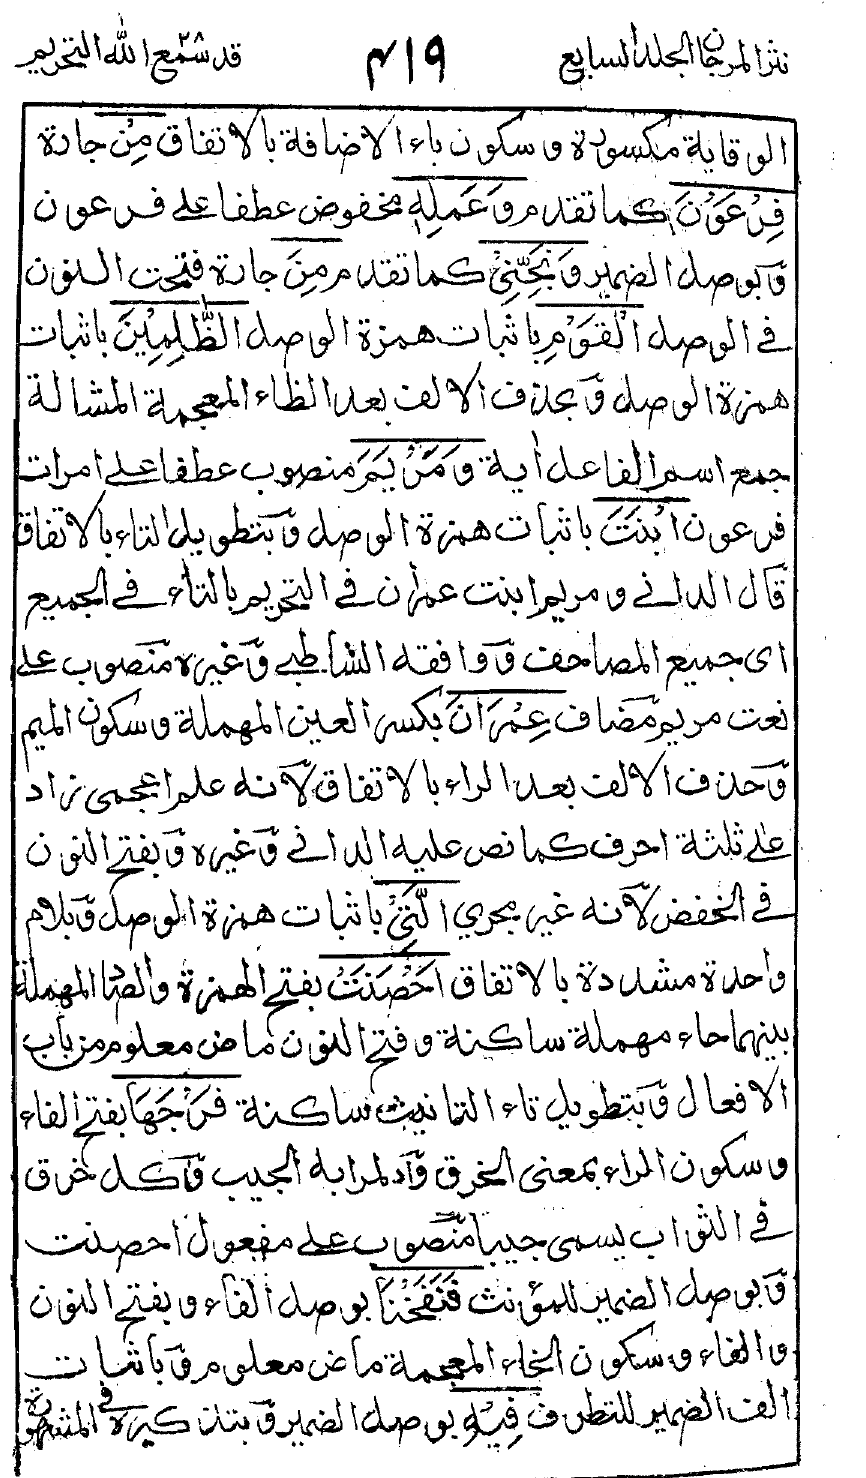 نثر المرجان الجلد السابع
٤١٩
قد سمع الله ٢٨ التحريم
الوقاية مكسورة و سكون ياء الاضافة بالاتفاق مِنْ جارة
فِرْعَوْنَ كما تقدم وَعَمَلِهٖ مخفوض عطفا على فرعون
و بوصل الضمير وَنَجِّنِيْ كما تقدم مِنَ جارة فتحت النون
في الوصل الْقَوْمِ باثبات همزة الوصل الظّٰلِمِيْنَ باثبات
همزة الوصل و بحذف الالف بعد الظاء المعجمة المشالة
جمع اسم الفاعل اٰية وَمَرْيَمَ منصوب عطفا على امرات
فرعون ابْنَتَ باثبات همزة الوصل و بتطويل التاء بالاتفاق
قال الداني و مريم ابنت عمران في التحريم بالتاء في الجميع
اى جميع المصاحف و وافقه الشاطبي و غيره منصوب على
نعت مريم مضاف عِمْرٰنَ بكسر العين المهملة و سكون الميم
و حذف الالف بعد الراء بالاتفاق لانه علم اعجمى زاد
على ثلثة احرف كما نص عليه الداني و غيره و بفتح النون
في الخفض لانه غير مجري الَّتِيْ باثبات همزة الوصل و بلام
واحدة مشددة بالاتفاق اَحْصَنَتْ بفتح الهمزة والصاد المهملة
بينهما حاء مهملة ساكنة و فتح النون ماض معلوم من باب
الافعال و بتطويل تاء التانيث ساكنة فَرْجَهَا بفتح الفاء
و سكون الراء بمعنى الخرق و المراد به الجيب و كل خرق
في الثواب يسمى جيبا منصوب على مفعول احصنت
و بوصل الضمير للمؤنث فَنَفَخْنَا بوصل الفاء و بفتح النون
و الفاء و سكون الخاء المعجمة ماض معلوم و باثبات
الف الضمير للتطرف فِيْهِ بوصل الضمير و بتذكيره في المشهورة